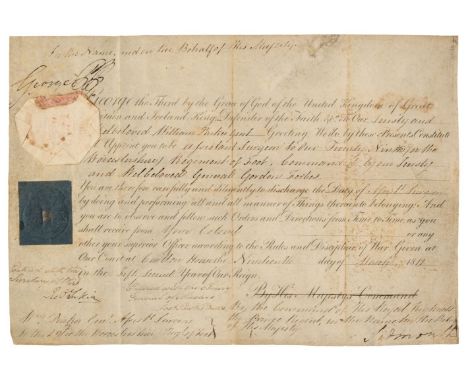 In the Name and on the Behalf of His Majesty
George P R
George the Third by the Grace of God of the United Kingdom of Great
Britain and Ireland King, Defender of the Faith &c To Our Trusty and
Welbeloved William Parker Gent Greeting We do by these Presents Constitute
& Appoint you to be Assistant Surgeon to Our Twenty Ninth or the
Worcestershire Regiment of Foot, Commanded by Our Trusty
and Welbeloved General Gordon Forbes
You are therefore carefully and diligently to discharge the Duty of Assist Surgeon
by doing and performing all and all manner of Things thereunto belonging. And
you are to observe and follow such Orders and Directions from Time to Time as you
shall receive from your Colonel or any
other your superior Officer according to the Rules and Discipline of War Given at
Our Court at Carlton House the Nineteenth day of March 1812
in the Fifty Second Year of Our Reign.
By His Majesty's Command
By the Command of His Royal Highness
the Prince Regent, in the Name and on the Behalf
of His Majesty
Wm Parker Gent Assist Surgeon